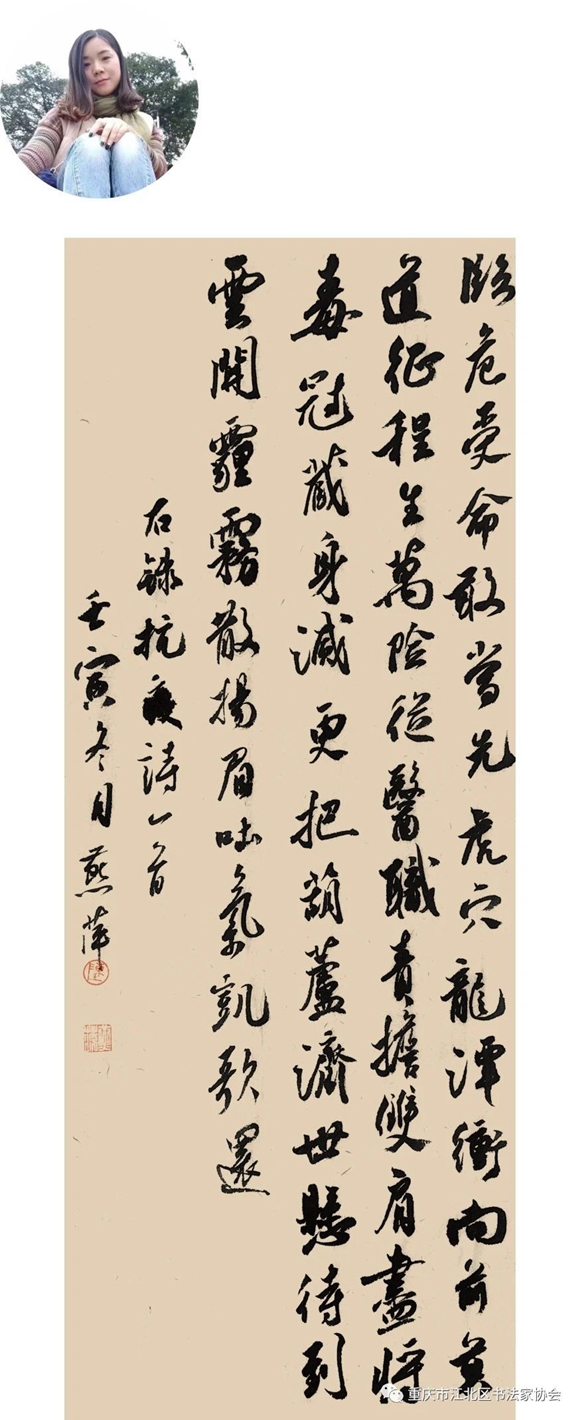 臨危受命敢當先虎穴龍潭衝向前莫
道征程生萬險從醫職責擔雙肩盡將
毒冠藏身滅更把葫蘆濟世懸待到
雲開霾霧散揚眉吐氣凱歌還
右錄抗疫詩一首
壬寅冬月燕萍
重庆市江北区书法家协会